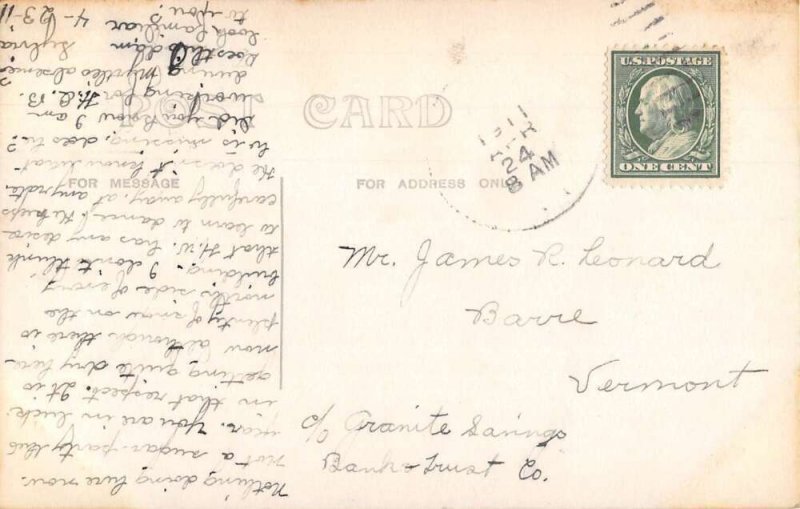 POST CARD
FOR MESSAGE
FOR ADDRESS ONLY
U.S. POSTAGE
ONE CENT
APR
24
8 AM
1911
Mr. James R. Leonard
Barre
Vermont
c/o Granite Savings
Bank & Trust Co.
Nothing doing here now.
not a sugar-party this
year. You are in luck
in that respect. It is
getting quite dry here
now although there is
plenty of snow on the
north side of every
building. I don't think
that H.W. has any desire
to learn to dance, & he keeps
carefully away, at any rate.
He doesn't know what
he is missing, does he?
Did you know I am
working for H.C.B.
during Myrtle's absence?
Does this dam
look familiar
to you?
Sylvia
4-23-11